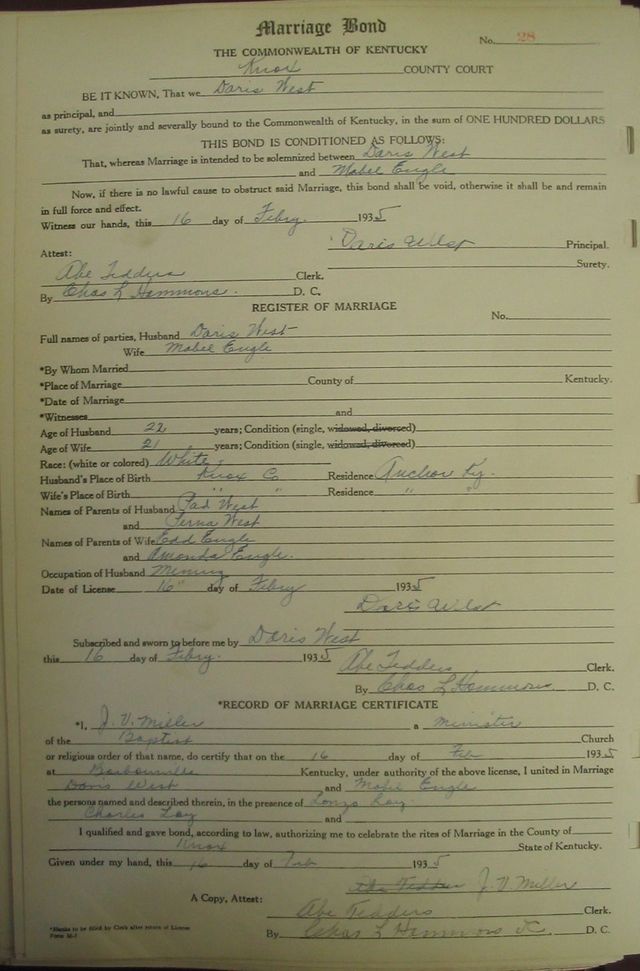 Marriage Bond
No. 28
THE COMMONWEALTH OF KENTUCKY
Knox COUNTY COURT
BE IT KNOWN, That we Daris West
as principal, and
as surety, are jointly and severally bound to the Commonwealth of Kentucky, in the sum of ONE HUNDRED DOLLARS
THIS BOND IS CONDITIONED AS FOLLOWS:
That, whereas Marriage is intended to be solemnized between Daris West
and Mabel Engle
Now, if there is no lawful cause to obstruct said Marriage, this bond shall be void, otherwise it shall be and remain
in full force and effect.
Witness our hands, this 16 day of Febry. 1935
Daris West Principal.
Attest: Surety.
Abe Tedders Clerk.
By Chas L Hammons. D. C.
REGISTER OF MARRIAGE
No.
Full names of parties, Husband Daris West
Wife Mabel Engle
*By Whom Married
*Place of Marriage County of Kentucky.
*Date of Marriage
*Witnesses and
Age of Husband 22 years; Condition (single, widowed, divorced)
Age of Wife 21 years; Condition (single, widowed, divorced)
Race: (white or colored) White.
Husband's Place of Birth Knox Co Residence Anchor Ky.
Wife's Place of Birth " " Residence " "
Names of Parents of Husband Pad West
and West
Names of Parents of Wife Edd Engle
and Amonda Engle.
Occupation of Husband Mening
Date of License 16" day of Febry 1935
Daris West
Subscribed and sworn to before me by Daris West
this 16 day of Febry. 1935 Abe Tedders Clerk.
By Chas L Hammons. D. C.
*RECORD OF MARRIAGE CERTIFICATE
*I, J. V. Miller a minister
of the Baptist Church
or religious order of that name, do certify that on the 16 day of Feb 1935
at Barbourville Kentucky, under authority of the above license, I united in Marriage
Daris West and Mabel Engle
the persons named and described therein, in the presence of Lonzo Lay.
Charles Lay and
I qualified and gave bond, according to law, authorizing me to celebrate the rites of Marriage in the County of
Knox State of Kentucky.
Given under my hand, this 16 day of Feb 1935
Abe Tedders J. V. Miller
A Copy, Attest: Abe Tedders Clerk.
*Blanks to be filled by Clerk after return of License
Form M-1
By Chas L Hammons DC D. C.